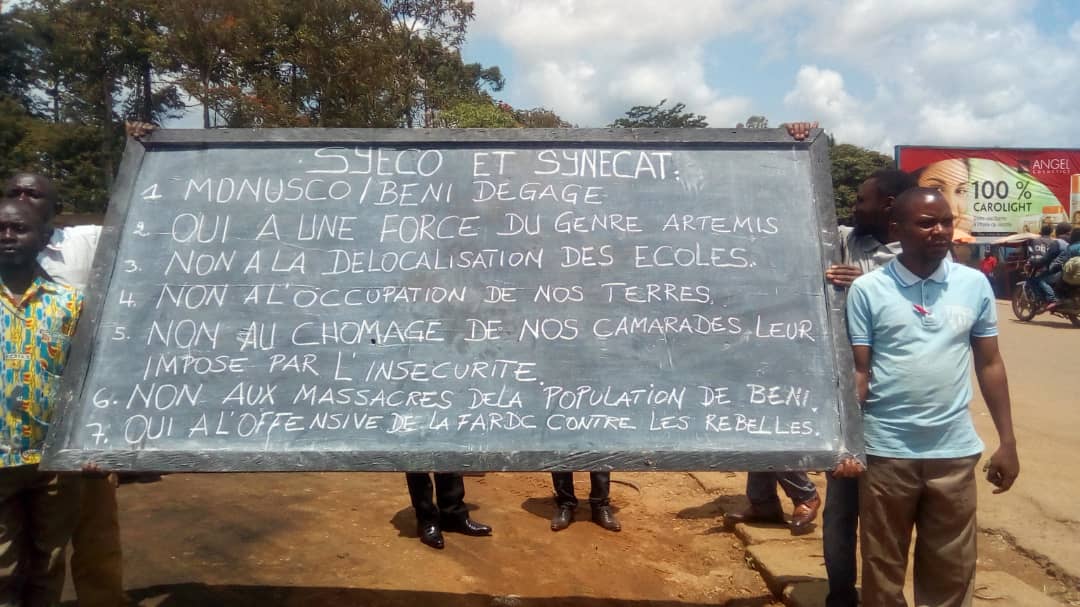 SYECO ET SYNECAT.
1 MONUSCO/BENI DEGAGE
2. OUI A UNE FORCE DU GENRE ARTEMIS
3. NON A LA DELOCALISATION DES ECOLES.
4. NON A L'OCCUPATION DE NOS TERRES.
5. NON AU CHOMAGE DE NOS CAMARADES LEUR
IMPOSE PAR L'INSECURITE.
6. NON AUX MASSACRES DELA POPULATION DE BENI.
7. OUI A L'OFFENSIVE DE LA FARDC CONTRE LES REBELLES.
ANGEL
COSMETICS
100 %
CAROLIGHT